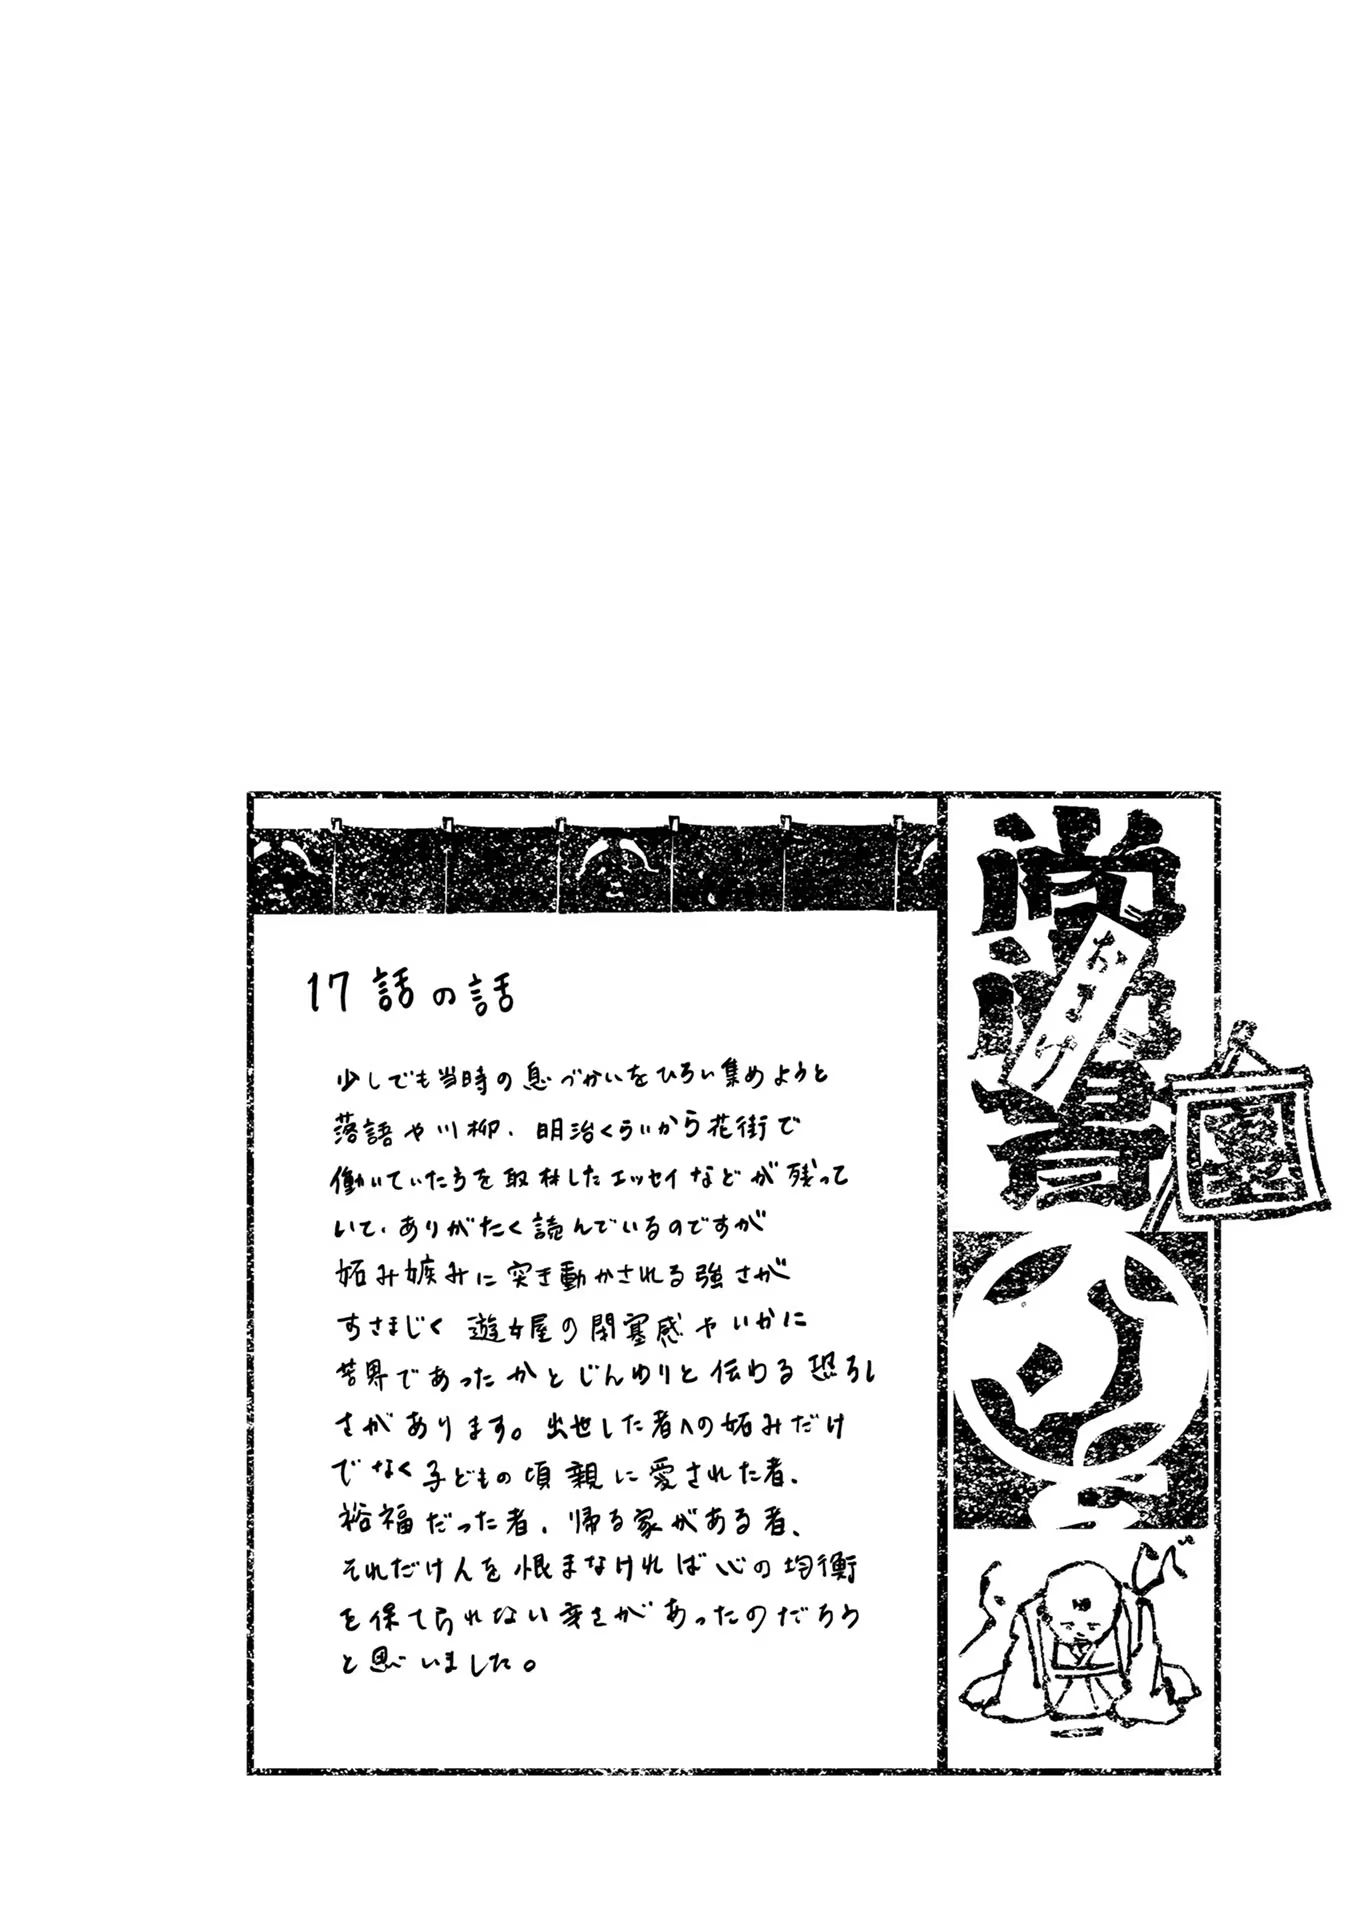 17話の話
少しでも当時の息づかいをひろい集めようと
落語や川柳、明治くらいから花街で
働いていた方を取材したエッセイなどが残って
いて、ありがたく読んでいるのですが
妬み嫉みに突き動かされる強さが
すさまじく遊女屋の閉塞感やいかに
苦界であったかとじんわりと伝わる恐ろし
さがあります。出世した者への妬みだけ
でなく子どもの頃親に愛された者、
裕福だった者、帰る家がある者、
それだけ人を恨まなければ心の均衡
を保てられない辛さがあったのだろう
と思いました。
おまけ